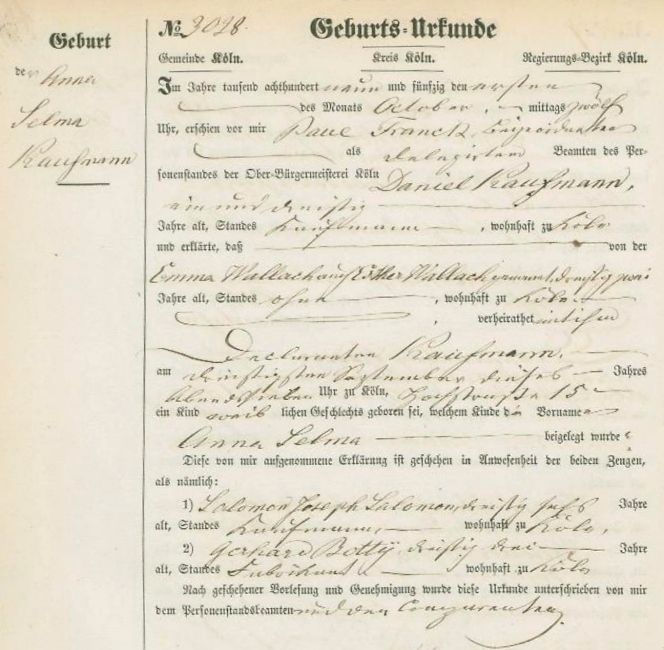 Geburt
der Anna
Selma
Kaufmann
No 3028.
Geburts-Urkunde
Gemeinde Köln. Kreis Köln. Regierungs-Bezirk Köln.
Im Jahre tausend achthundert neun und fünfzig den ersten
des Monats October, mittags zwölf
Uhr, erschien vor mir Paul Franck, Beigeordneten
als delegirten Beamten des Per-
sonenstandes der Ober-Bürgermeisterei Köln Daniel Kaufmann,
ein und dreißig
Jahre alt, Standes Kaufmann, wohnhaft zu Köln
und erklärte, daß von der
Emma Wallach auch Esther Wallach genannt, dreißig zwei
Jahre alt, Standes ohne, wohnhaft zu Köln
, verheirathet mit ihm
Declaranten Kaufmann,
am dreißigsten September dieses Jahres
Abends sieben Uhr zu Köln, Hochstraße 15
ein Kind weib lichen Geschlechts geboren sei, welchem Kinde die Vornamen
Anna Selma beigelegt wurden
Diese von mir aufgenommene Erklärung ist geschehen in Anwesenheit der beiden Zeugen,
als nämlich:
1) Salomon Joseph Salomon, dreißig sechs Jahre
alt, Standes Kaufmann, wohnhaft zu Köln,
2) Gerhard Botty dreißig drei Jahre
alt, Standes Fabrikant wohnhaft zu Köln
Nach geschehener Vorlesung und Genehmigung wurde diese Urkunde unterschrieben von mir
dem Personenstandsbeamten und den Comparenten